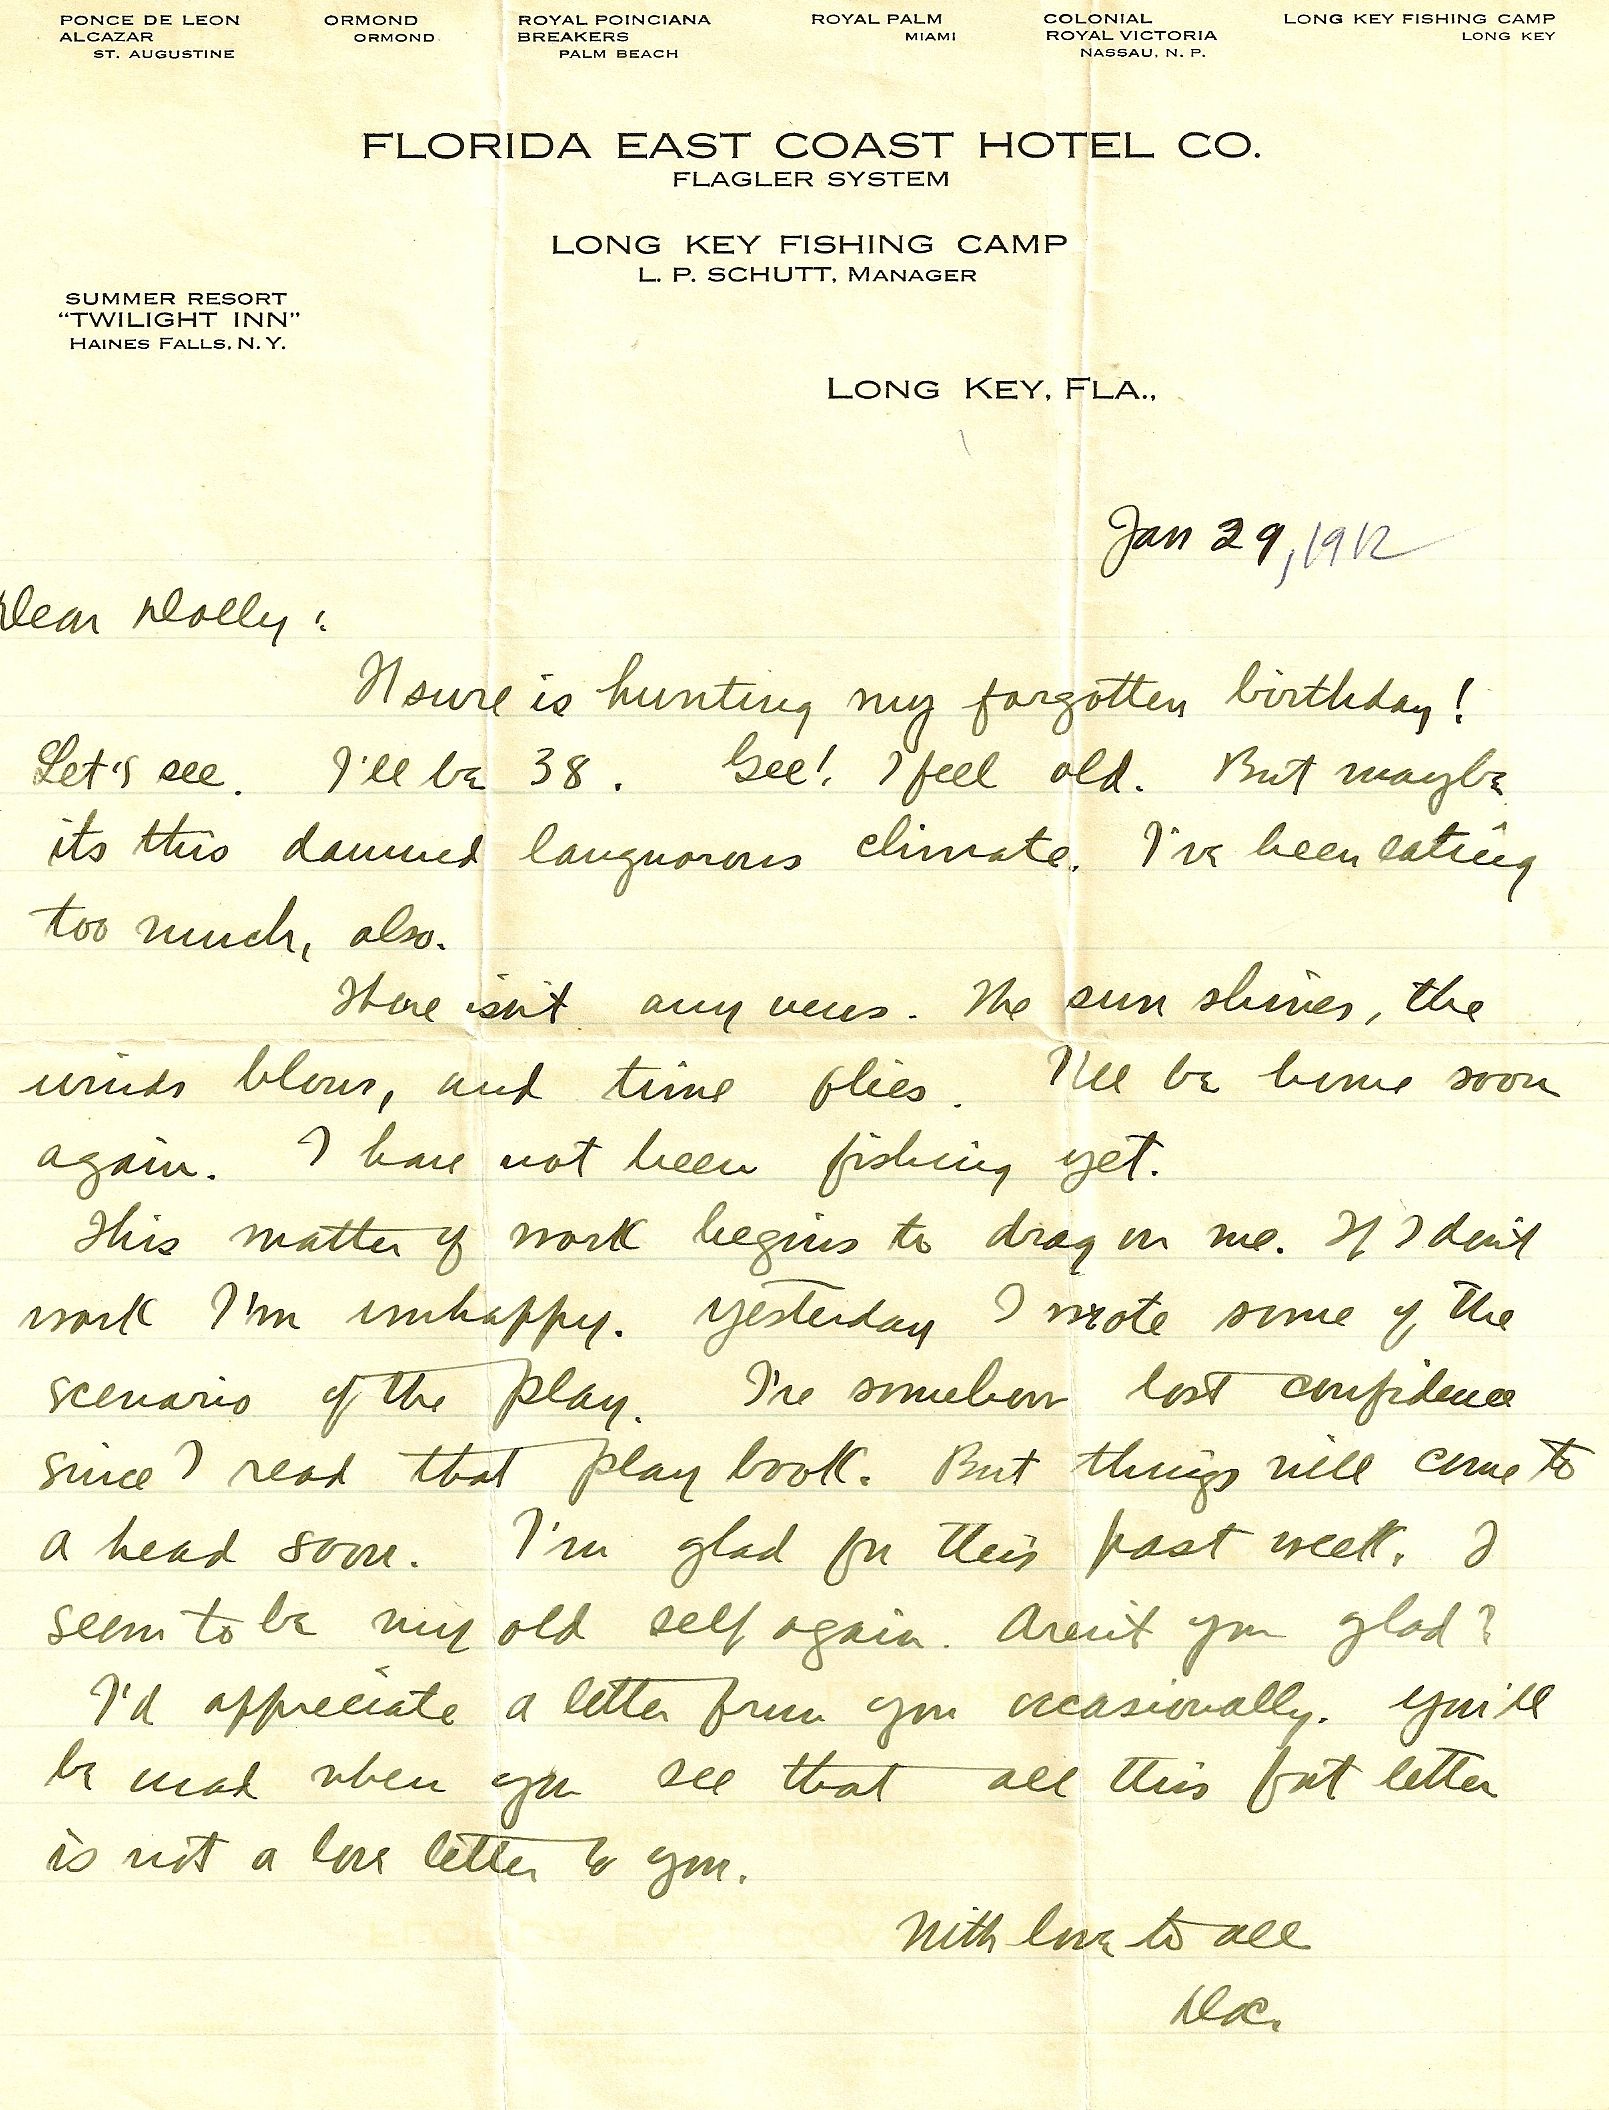 PONCE DE LEON
ALCAZAR
ST. AUGUSTINE
ORMOND
ORMOND
ROYAL POINCIANA
BREAKERS
PALM BEACH
ROYAL PALM
MIAMI
COLONIAL
ROYAL VICTORIA
NASSAU, N. P.
LONG KEY FISHING CAMP
LONG KEY
FLORIDA EAST COAST HOTEL CO.
FLAGLER SYSTEM
LONG KEY FISHING CAMP
L. P. SCHUTT, MANAGER
SUMMER RESORT
"TWILIGHT INN"
HAINES FALLS, N. Y.
LONG KEY, FLA.,
Jan 29, 1912
Dear Dolly:
It sure is hunting my forgotten birthday!
Let's see. I'll be 38. Gee! I feel old. But maybe
its this damned languorous climate. I've been eating
too much, also.
There isn't any news. The sun shines, the
winds blow, and time flies. I'll be home soon
again. I have not been fishing yet.
This matter of work begins to drag on me. If I don't
work I'm unhappy. Yesterday I wrote some of the
scenario of the play. I've somehow lost confidence
since I read that play book. But things will come to
a head soon. I'm glad for this past week. I
seem to be my old self again. Aren't you glad?
I'd appreciate a letter from you occasionally. You'll
be mad when you see that all this fat letter
is not a love letter to you.
With love to all
Doc.